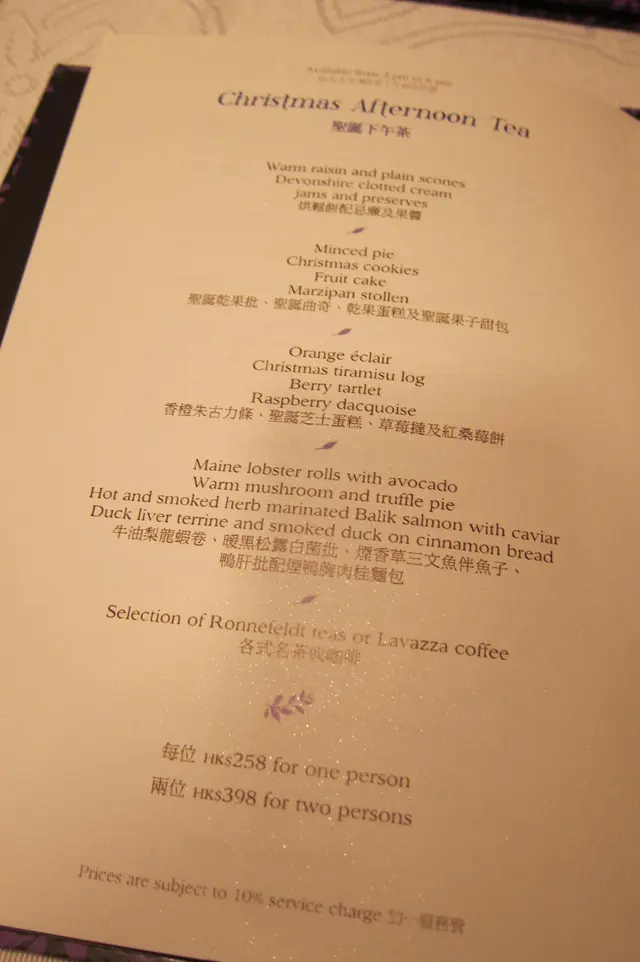 Available from 3 pm to 6 pm
Christmas Afternoon Tea
聖誕下午茶
Warm raisin and plain scones
Devonshire clotted cream
jams and preserves
烘鬆餅配忌廉及果醬
Minced pie
Christmas cookies
Fruit cake
Marzipan stollen
聖誕乾果批、聖誕曲奇、乾果蛋糕及聖誕果子甜包
Orange éclair
Christmas tiramisu log
Berry tartlet
Raspberry dacquoise
香橙朱古力條、聖誕芝士蛋糕、草莓撻及紅桑莓餅
Maine lobster rolls with avocado
Warm mushroom and truffle pie
Hot and smoked herb marinated Balik salmon with caviar
Duck liver terrine and smoked duck on cinnamon bread
牛油梨龍蝦卷、暖黑松露白菌批、煙香草三文魚伴魚子、
鴨肝批配煙鴨胸肉桂麵包
Selection of Ronnefeldt teas or Lavazza coffee
各式名茶或咖啡
每位 HK$258 for one person
兩位 HK$398 for two persons
Prices are subject to 10% service charge 加一服務費